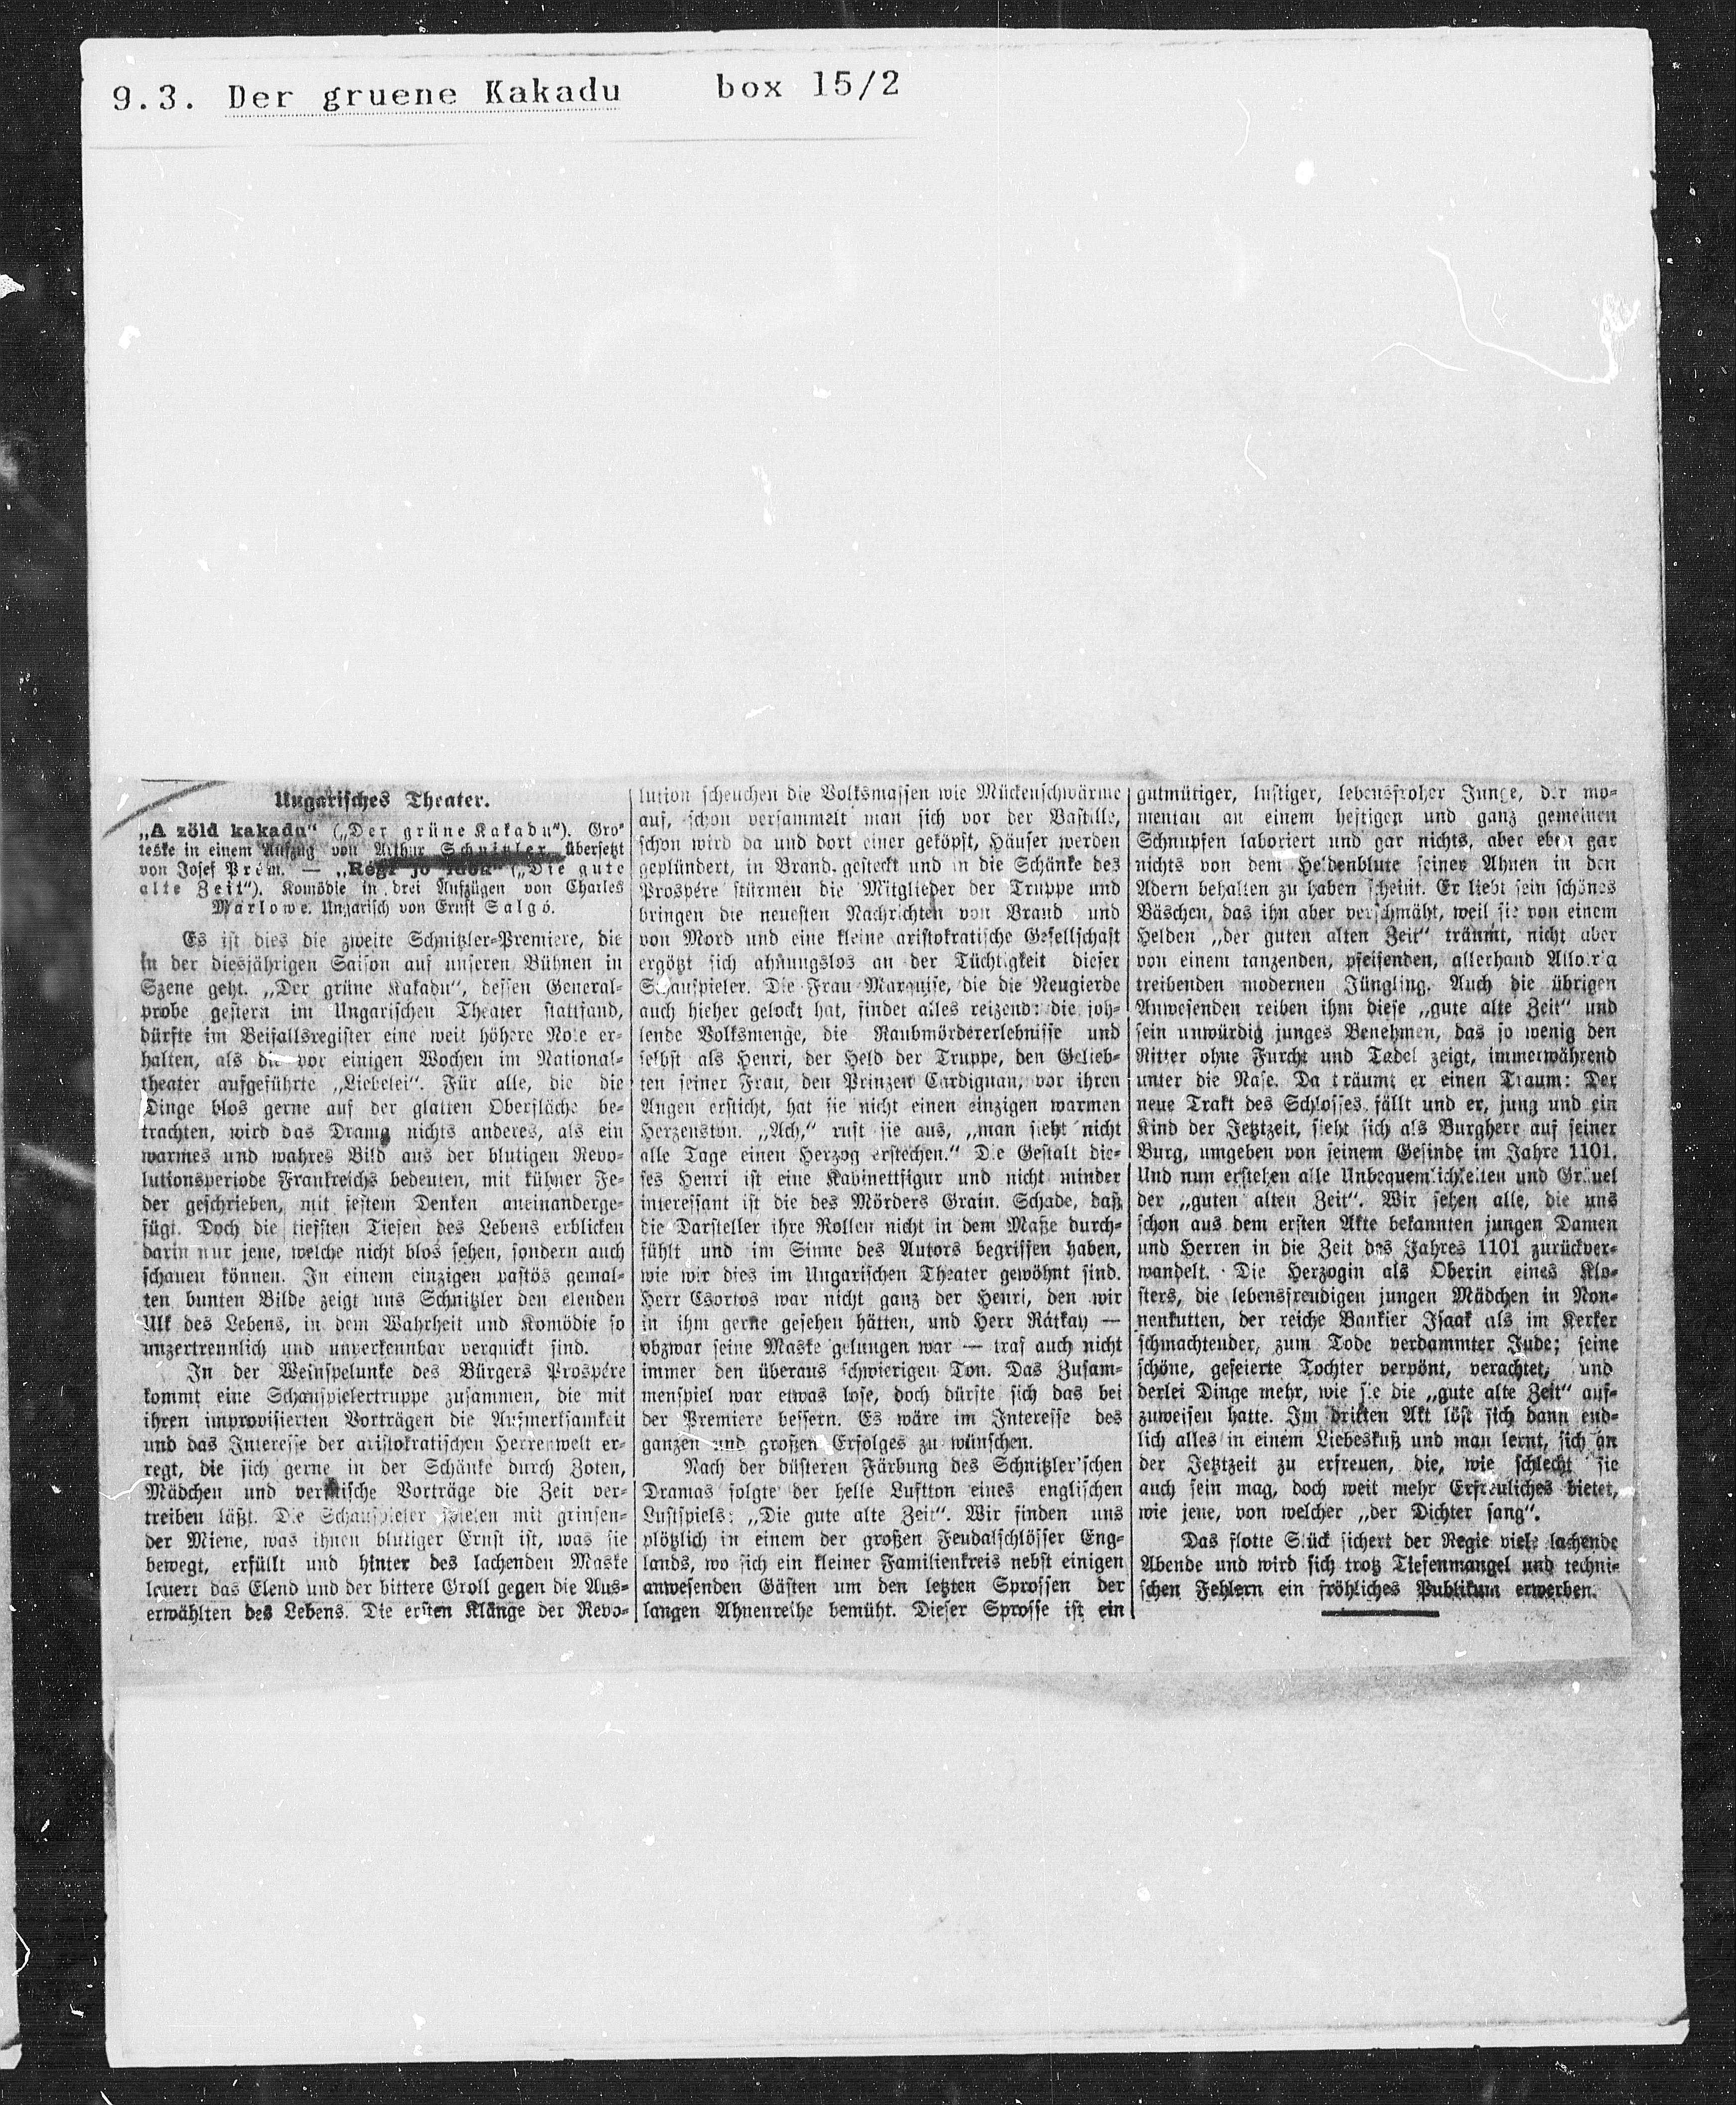 9.3. Der gruene Kakadu box 15/2
Ungarisches Theater.
„A zöld kakadu“ („Der grüne Kakadu“). Gro-
teske in einem Aufzug von Arthur Schnitzler übersetzt
von Josef Prém. — „Régi jó idők“ („Die gute
alte Zeit“). Komödie in drei Aufzügen von Charles
Marlowe. Ungarisch von Ernst Salgó.
Es ist dies die zweite Schnitzler-Premiere, die
in der diesjährigen Saison auf unseren Bühnen in
Szene geht. „Der grüne Kakadu“, dessen General-
probe gestern im Ungarischen Theater stattfand,
dürfte im Beifallsregister eine weit höhere Note er-
halten, als die vor einigen Wochen im National-
theater aufgeführte „Liebelei“. Für alle, die die
Dinge blos gerne auf der glatten Oberfläche be-
trachten, wird das Drama nichts anderes, als ein
warmes und wahres Bild aus der blutigen Revo-
lutionsperiode Frankreichs bedeuten, mit kühner Fe-
der geschrieben, mit festem Denken aneinanderge-
fügt. Doch die tiefsten Tiefen des Lebens erblicken
darin nur jene, welche nicht blos sehen, sondern auch
schauen können. In einem einzigen pastös gemal-
ten bunten Bilde zeigt uns Schnitzler den elenden
Ulk des Lebens, in dem Wahrheit und Komödie so
unzertrennlich und unverkennbar verquickt sind.
In der Weinspelunke des Bürgers Prospère
kommt eine Schauspielertruppe zusammen, die mit
ihren improvisierten Vorträgen die Aufmerksamkeit
und das Interesse der aristokratischen Herrenwelt er-
regt, die sich gerne in der Schänke durch Zoten,
Mädchen und Vorträge die Zeit ver-
treiben läßt. Die Schauspieler spielen mit grinsen-
der Miene, was ihnen blutiger Ernst ist, was sie
bewegt, erfüllt und hinter des lachenden Maske
lauert das Elend und der bittere Groll gegen die Aus-
erwählten des Lebens. Die ersten Klänge der Revo-
lution scheuchen die Volksmassen wie Mückenschwärme
auf, schon versammelt man sich vor der Bastille,
schon wird da und dort einer geköpft, Häuser werden
geplündert, in Brand gesteckt und in die Schänke des
Prospère stürmen die Mitglieder der Truppe und
bringen die neuesten Nachrichten von Brand und
von Mord und eine kleine aristokratische Gesellschaft
ergötzt sich ahnungslos an der Tüchtigkeit dieser
Schauspieler. Die Frau Marquise, die die Neugierde
auch hieher gelockt hat, findet alles reizend: die joh-
lende Volksmenge, die Raubmördererlebnisse und
selbst als Henri, der Held der Truppe, den Gelieb-
ten seiner Frau, den Prinzen Cardignan, vor ihren
Augen ersticht, hat sie nicht einen einzigen warmen
Herzenston. „Ach,“ ruft sie aus, „man sieht nicht
alle Tage einen Herzog erstechen.“ Die Gestalt die-
ses Henri ist eine Kabinettfigur und nicht minder
interessant ist die des Mörders Grain. Schade, daß
die Darsteller ihre Rollen nicht in dem Maße durch-
fühlt und im Sinne des Autors begriffen haben,
wie wir dies im Ungarischen Theater gewöhnt sind.
Herr Csortos war nicht ganz der Henri, den wir
in ihm gerne gesehen hätten, und Herr Rátkay —
obzwar seine Maske gelungen war — traf auch nicht
immer den überaus schwierigen Ton. Das Zusam-
menspiel war etwas lose, doch dürfte sich das bei
der Premiere bessern. Es wäre im Interesse des
ganzen und großen Erfolges zu wünschen.
Nach der düsteren Färbung des Schnitzler'schen
Dramas folgte der helle Luftton eines englischen
Lustspiels: „Die gute alte Zeit“. Wir finden uns
plötzlich in einem der großen Feudalschlösser Eng-
lands, wo sich ein kleiner Familienkreis nebst einigen
anwesenden Gästen um den letzten Sprossen der
langen Ahnenreihe bemüht. Dieser Sprosse ist ein
gutmütiger, lustiger, lebensfroher Junge, der mo-
mentan an einem heftigen und ganz gemeinen
Schnupfen laboriert und gar nichts, aber eben gar
nichts von dem Heldenblute seiner Ahnen in den
Adern behalten zu haben scheint. Er liebt sein schönes
Bäschen, das ihn aber verschmäht, weil sie von einem
Helden „der guten alten Zeit“ träumt, nicht aber
von einem tanzenden, pfeifenden, allerhand Allotria
treibenden modernen Jüngling. Auch die übrigen
Anwesenden reiben ihm diese „gute alte Zeit“ und
sein unwürdig junges Benehmen, das so wenig den
Ritter ohne Furcht und Tadel zeigt, immerwährend
unter die Nase. Da träumt er einen Traum: Der
neue Trakt des Schlosses fällt und er, jung und ein
Kind der Jetztzeit, sieht sich als Burgherr auf seiner
Burg, umgeben von seinem Gesinde im Jahre 1101.
Und nun erstehen alle Unbequemlichkeiten und Gräuel
der „guten alten Zeit“. Wir sehen alle, die uns
schon aus dem ersten Akte bekannten jungen Damen
und Herren in die Zeit des Jahres 1101 zurückver-
wandelt. Die Herzogin als Oberin eines Klo-
sters, die lebensfreudigen jungen Mädchen in Non-
nenkutten, der reiche Bankier Isaak als im Kerker
schmachtender, zum Tode verdammter Jude; seine
schöne, gefeierte Tochter verpönt, verachtet, und
derlei Dinge mehr, wie sie die „gute alte Zeit“ auf-
zuweisen hatte. Im dritten Akt löst sich dann end-
lich alles in einem Liebeskuß und man lernt, sich an
der Jetztzeit zu erfreuen, die, wie schlecht sie
auch sein mag, doch weit mehr Erfreuliches bietet,
wie jene, von welcher „der Dichter sang“.
Das flotte Stück sichert der Regie viele lachende
Abende und wird sich trotz Tiefenmangel und techni-
schen Fehlern ein fröhliches Publikum erwerben.